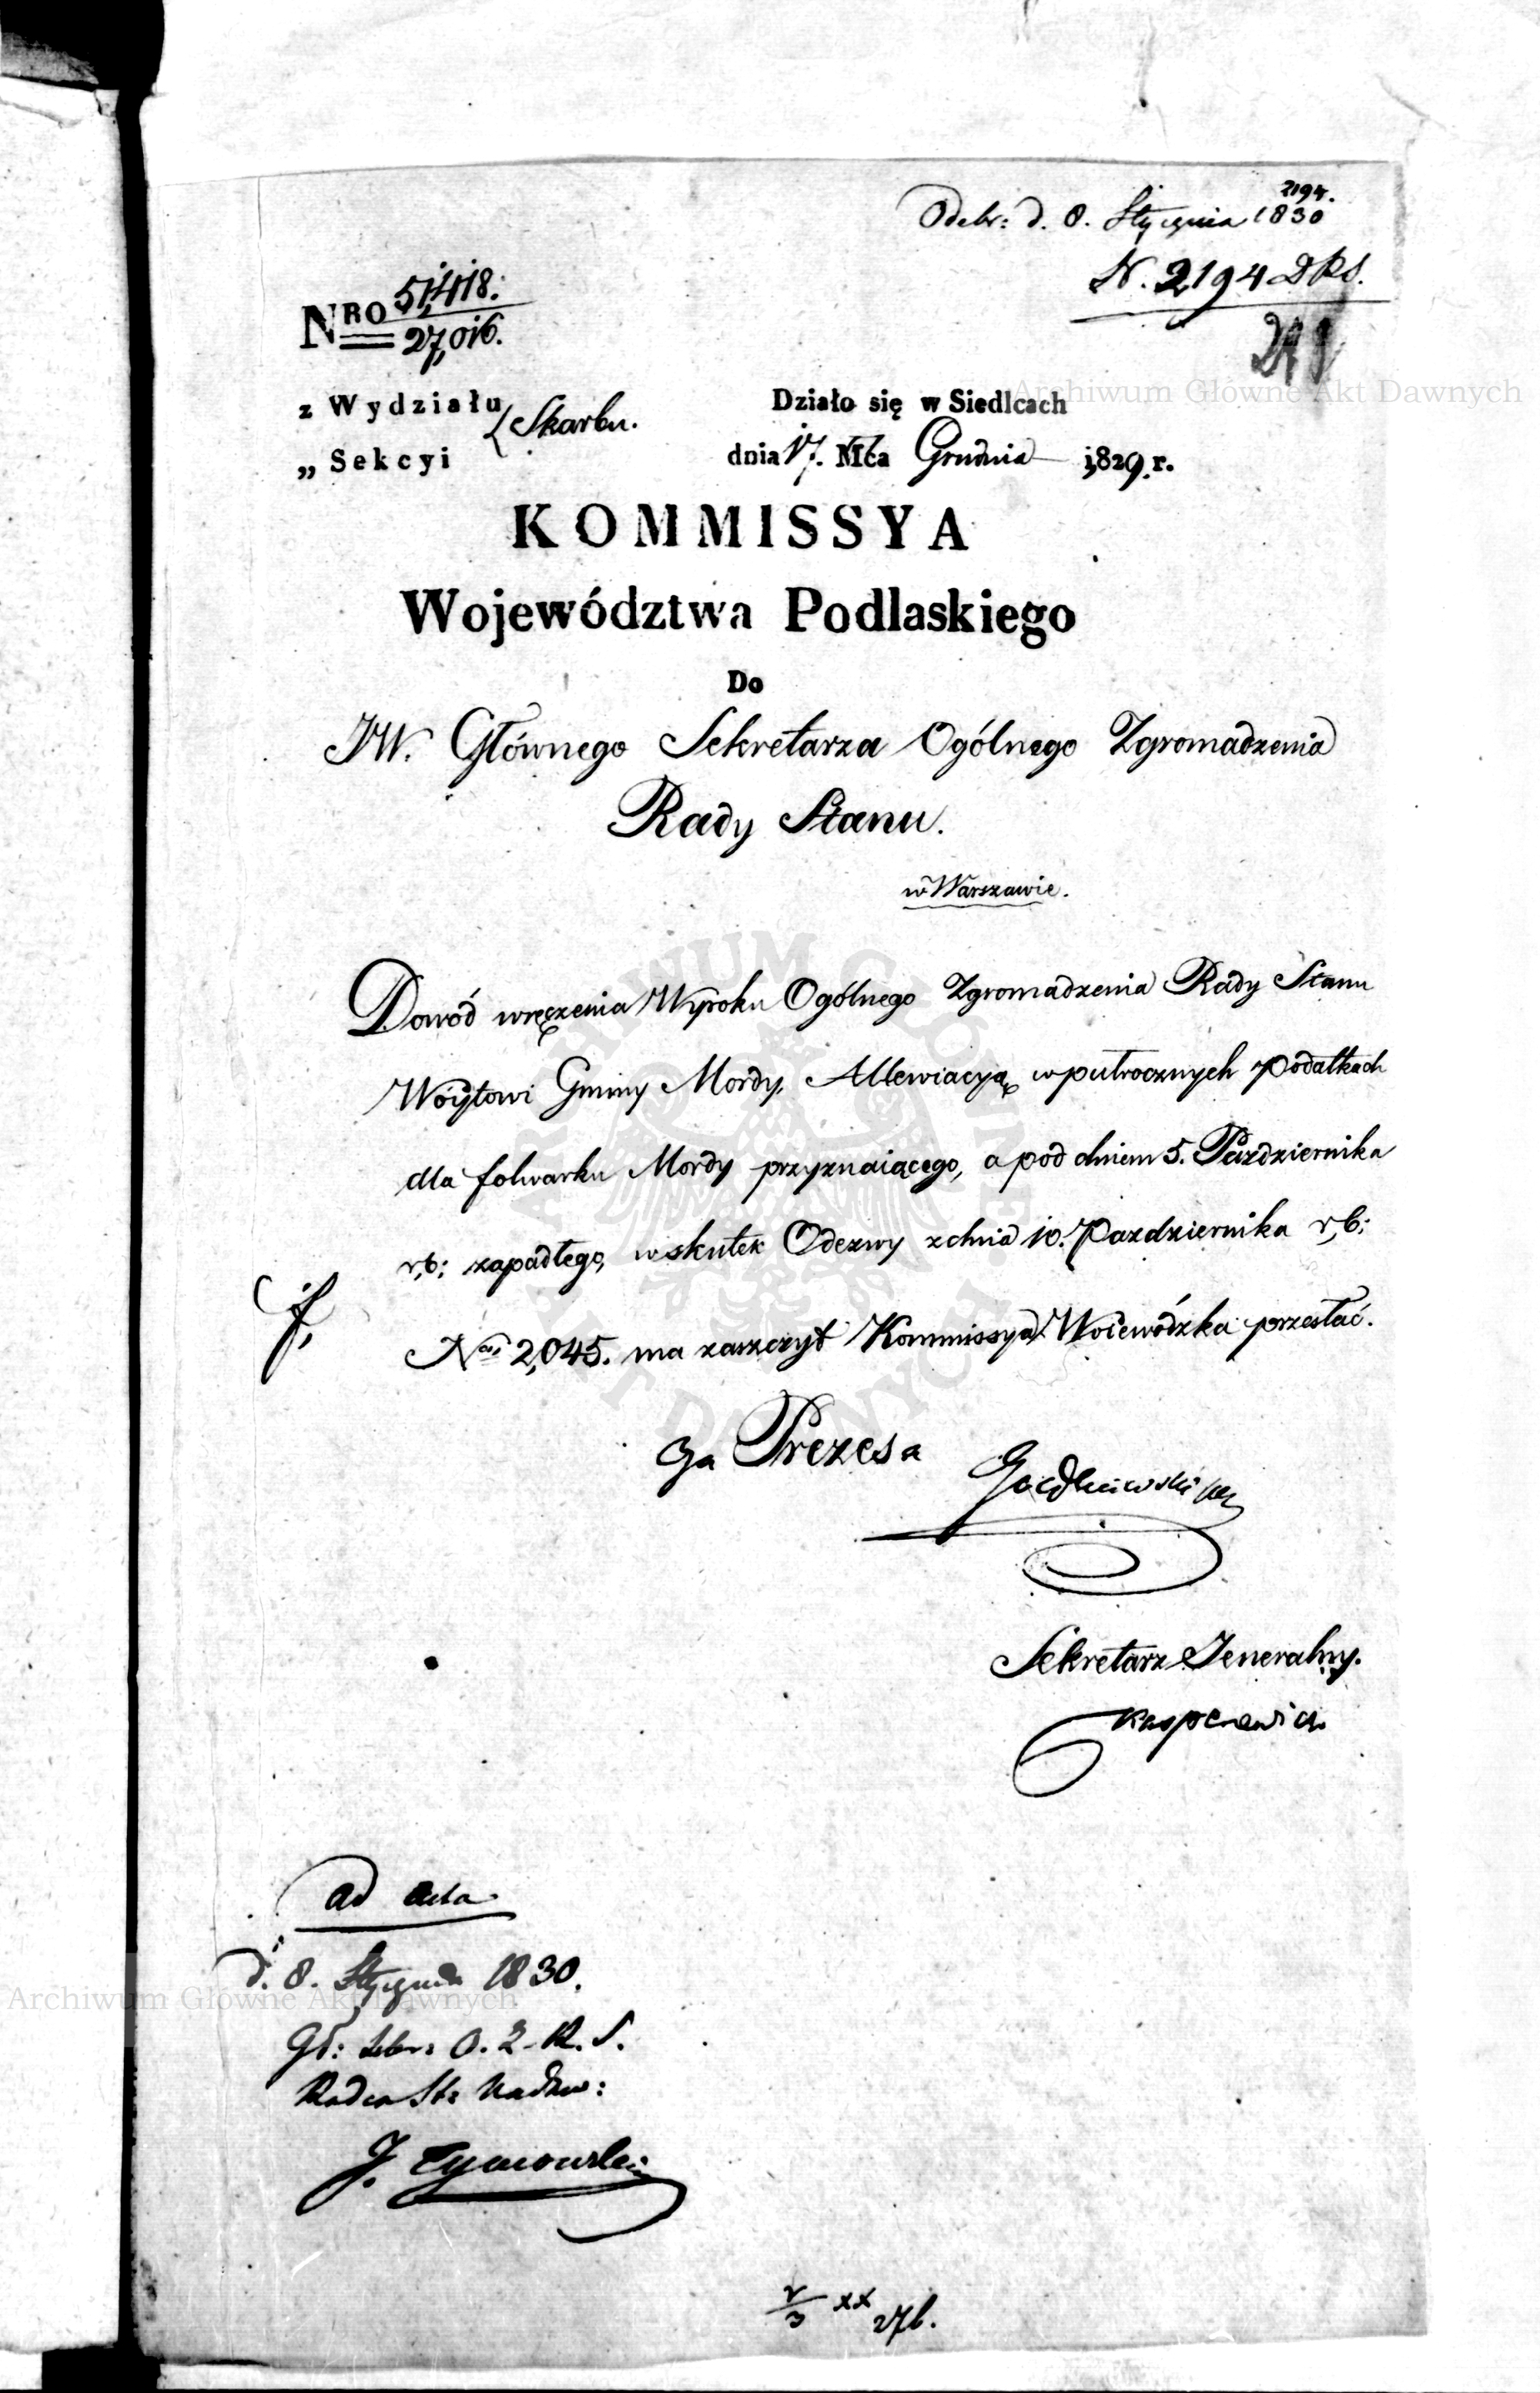 2194.
Odebr: d. 8. Stycznia 1830
N. 2194 DRS.
NRO 51,418.
27,016.
z Wydziału
Skarbu.
„ Sekcyi
Działo się w Siedlcach
dnia 17. Mca Grudnia 1829. r.
KOMMISSYA
Województwa Podlaskiego
Do
JW. Głównego Sekretarza Ogólnego Zgromadzenia
Rady Stanu.
w Warszawie.
Dowód wręczenia Wyroku Ogólnego Zgromadzenia Rady Stanu
Woytowi Gminy Mordy, Allewiacyą w putrocznych Podatkach
dla folwarku Mordy przyznaiącego, a pod dniem 5. Pazdziernika
r,b: zapadłego, w skutek Odezwy z dnia 10. Pazdziernika r,b:
f,
No 2,045. ma zaszczyt Kommissya Woiewódzka przesłać.
Za Prezesa
Sekretarz Jeneralny.
ad acta
d. 8. Stycznia 1830.
Gł: Sekr: O. Z. R. S.
Radca St: Nadzw:
J. Tymowski
27b.
Archiwum Główne Akt Dawnych
Archiwum Główne Akt Dawnych
ARCHIWUM GŁÓWNE AKT DAWNYCH